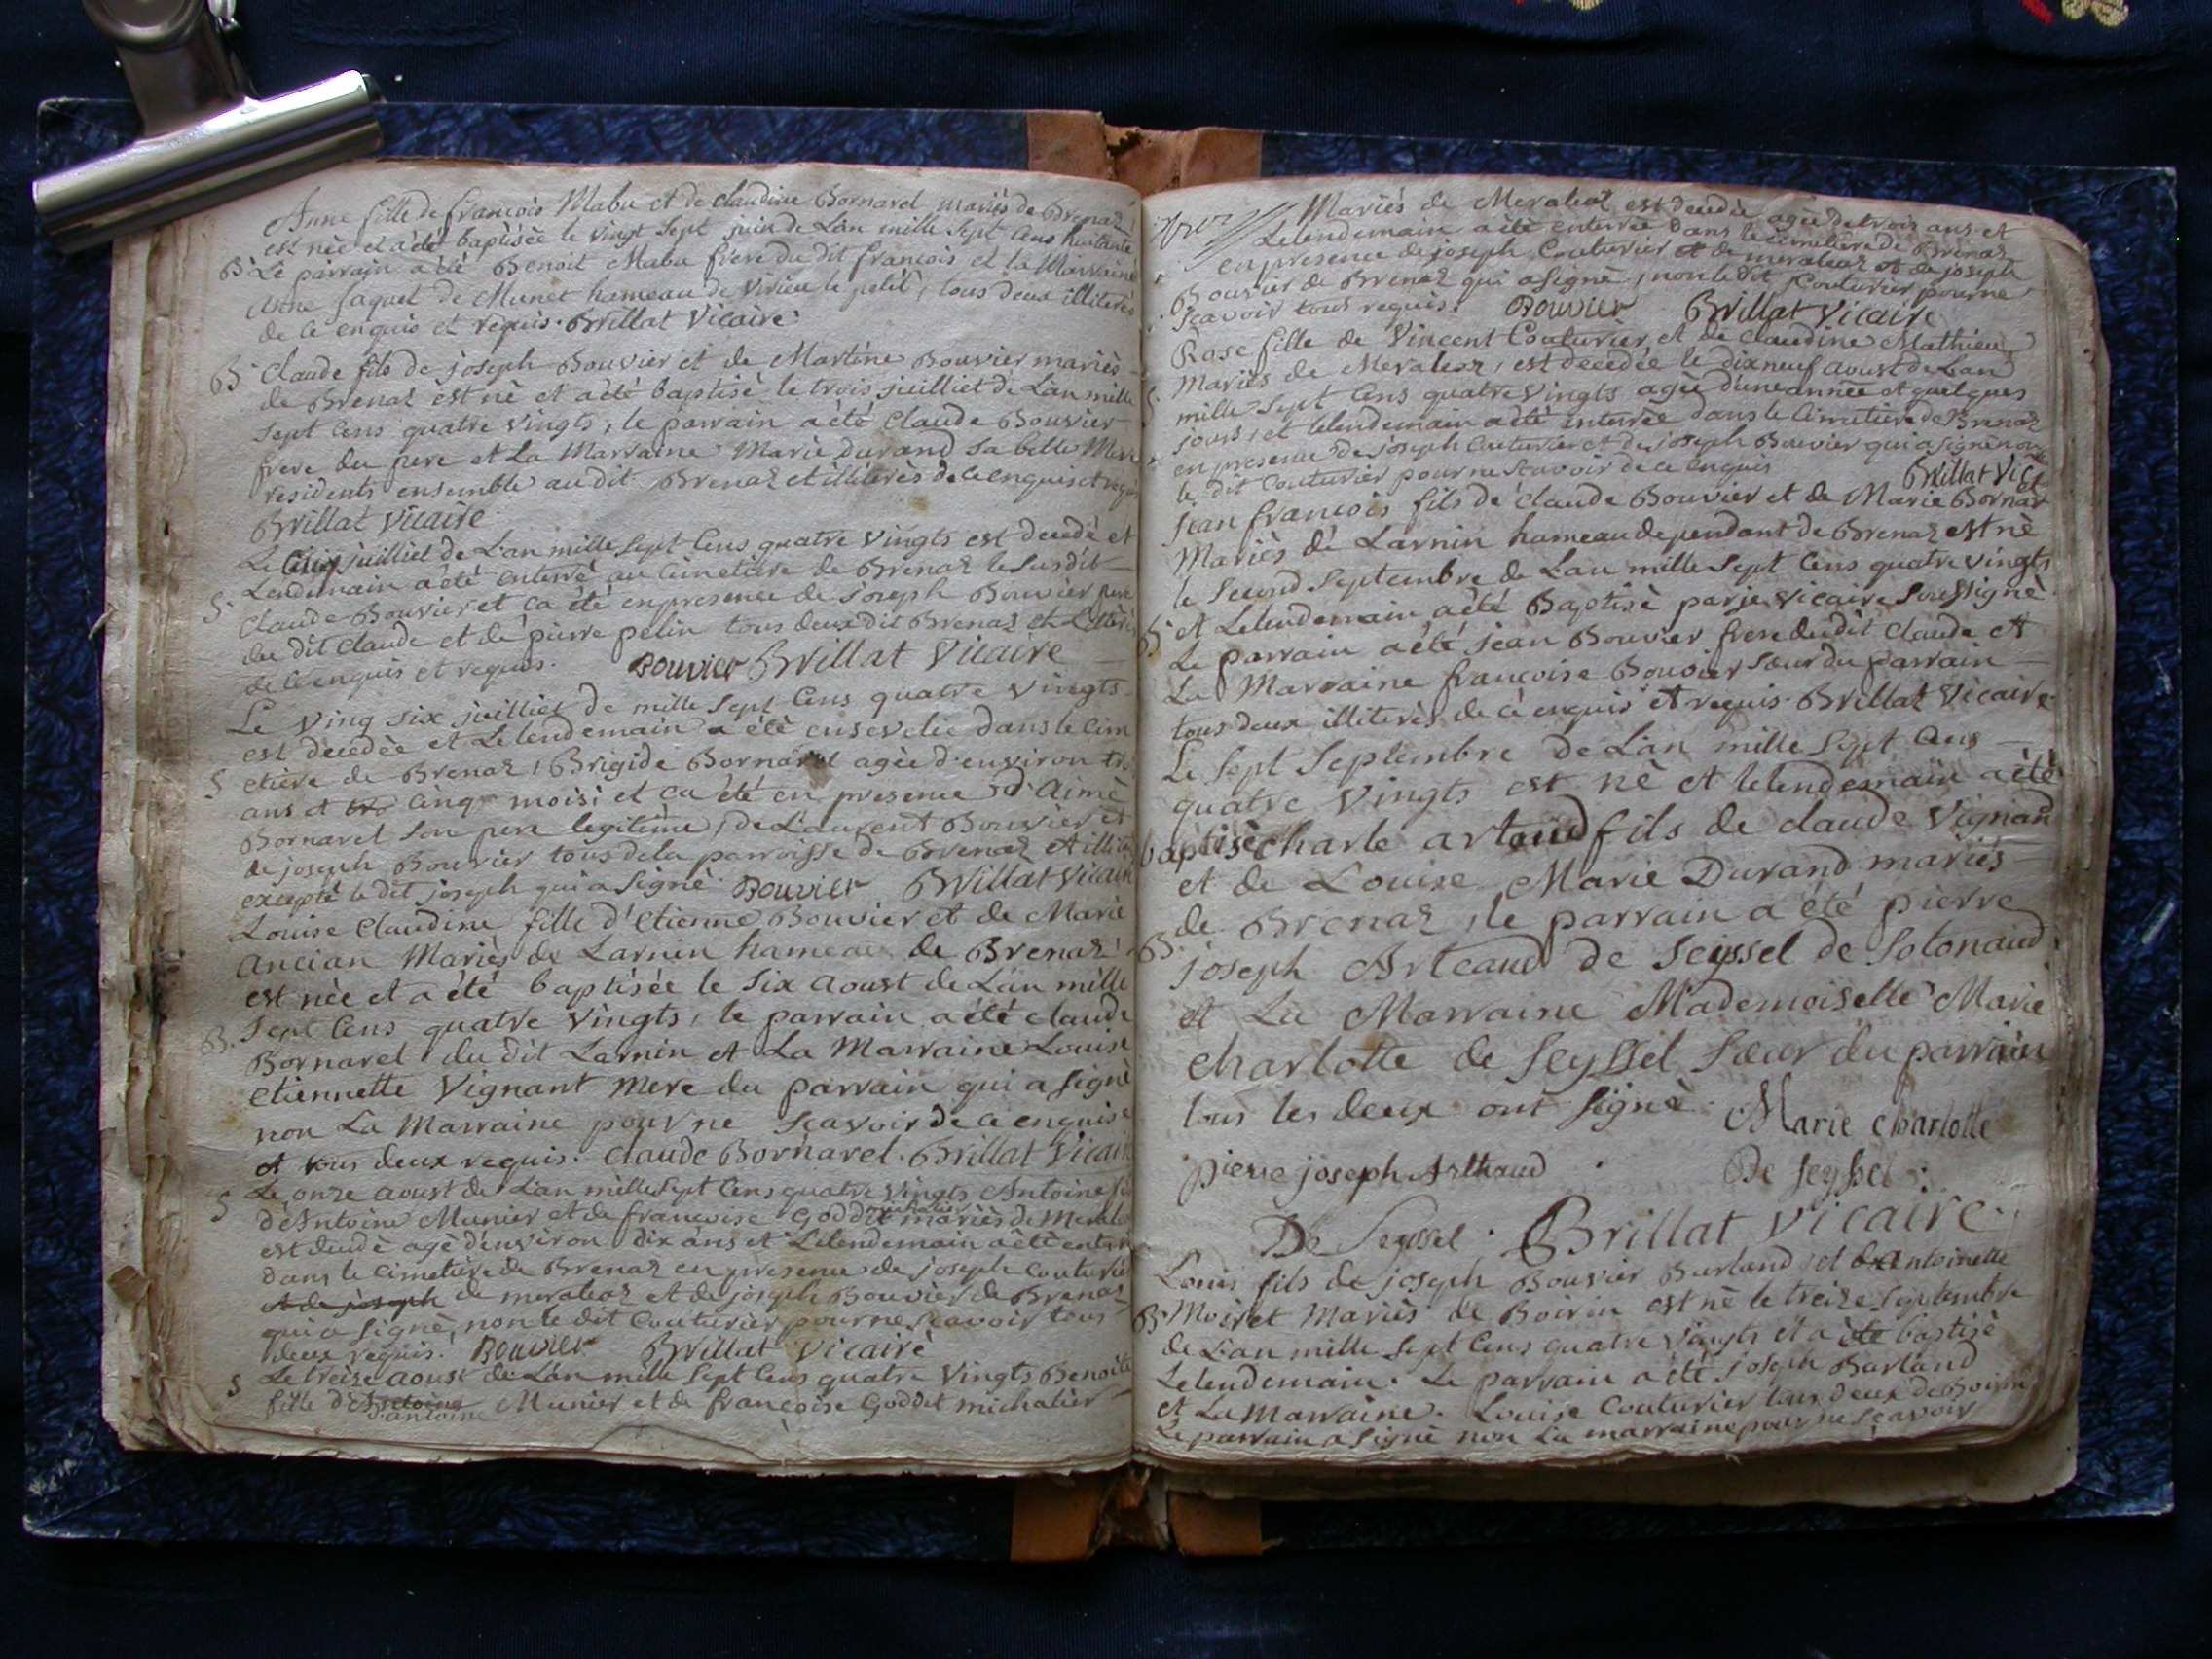 Anne fille de francois Mabu et de claudine Bornarel mariés de Brenaz
est nèe et a été baptisèe le vingt sept juin de L'an mille Sept Cens huitante
B Le parrain a été Benoit Mabu frere du dit francois et la Marraine
Anne Jaquet de Munet hameau de Virieu le petit, tous deux illiterés
de ce enquis et requis. Brillat Vicaire.
B claude fils de joseph Bouvier et de Martine Bouvier mariès
de Brenaz est nè et a été baptisè le trois juilliet de L'an mille
Sept Cens quatre vingts, le parrain a été Claude Bouvier
frere du pere et La Marraine Marie Durand sa belle Mere
residents ensemble au dit Brenaz et illiterès de ce enquis et requis
Brillat Vicaire
Le Cinq juilliet de L'an mille Sept Cens quatre vingts est decedè et
Lendemain a été enterrè au Cimetiere de Brenaz le Susdit
S. claude Bouvier et ca été en presence de Joseph Bouvier pere
du dit claude et de pierre pelin tous deux dit Brenaz et
de ce enquis et requis. Bouvier Brillat Vicaire
Le Ving six juilliet de mille Sept Cens quatre vingts
est decedèe et Le lendemain a étè ensevelie dans le Cim
S etiere de Brenaz, Brigide Bornarel agèe d'environ
ans et Cinq moisi et ca été en presence d'Aimè
Bornarel Son pere legitime, de Laurent Bouvier et
de joseph Bouvier tous de la parroisse de Brenaz et
exceptè le dit joseph qui a Signè. Bouvier Brillat Vicaire
Louise Claudine fille d'Etienne Bouvier et de Marie
Ancian Mariès de Larnin hameau de Brenaz
est nèe et a été baptisée le Six Aoust de L'an mille
B. Sept Cens quatre vingts, le parrain a été claude
Bornarel du dit Larnin et La Marraine Louise
Etiennette Vignant mere du parrain qui a Signè
non La Marraine pour ne Scavoir de ce enquise
et tous deux requis. Claude Bornarel. Brillat Vicaire
S Le onze Aoust de L'an mille Sept Cens quatre vingts Antoine fils
michalier
d'Antoine Munier et de francoise Goddet mariès de
est decedè agè d'environ dix ans et Lelendemain a étè
dans le Cimetiere de Brenaz en presence de joseph Couturier
et de joseph de meraleaz et de joseph Bouvier de Brenaz
qui a Signè, non le dit Couturier pour ne Scavoir tous
deux requis. Bouvier Brillat Vicaire
S Le treize Aoust de L'an mille Sept Cens quatre Vingts Benoite
fille d'Antoine Munier et de francoise Goddet michalier
d'antoine
Mariès de Meraleaz est decedèe agèe de trois ans et
Lelendemain a été enterrèe dans le Cimetiere de Brenaz
en presence de joseph Couturier et de meraleaz et de joseph
Bouvier de Brenaz qui a Signè, non le dit Couturier pour ne
Scavoir tous requis. Bouvier Brillat Vicaire
Rose fille de Vincent Couturier et de claudine Mathieu
Mariès de Meraleaz, est decedèe le dixneuf Aoust de L'an
mille Sept Cens quatre vingts agèe d'une année et quelques
jours, et lelendemain a été enterrèe dans le Cimetiere de Brenaz
en presence de joseph Couturier et de joseph Bouvier qui a Signè non
le dit Couturier pour ne Scavoir de ce enquis Brillat Vice
Jean francois fils de claude Bouvier et de Marie Bornarel
Mariès de Larnin hameau dependant de Brenaz est nè
le Second Septembre de L'an mille Sept Cens quatre vingts
B. et Lelendemain a été Baptisè par je Vicaire Soussignè
Le parrain a été jean Bouvier frere du dit claude et
La Marraine francoise Bouvier Sœur du parrain
tous deux illiterès de cè enquis et requis. Brillat Vicaire.
Le Sept Septembre de L'an mille Sept Cens
quatre vingts est nè et lelendemain a été
baptisè charle artaud fils de claude Vignand
et de Louise Marie Durand mariès
de Brenaz, le parrain a été pierre
B. joseph Arteaud de Seyssel de Sotonaud
et La Marraine Mademoiselle Marie
charlotte de Seyssel Sœur du parrain
tous les deux ont Signè. Marie charlotte
pierre joseph Arthaud De Seyssel.
De Seyssel. Brillat Vicaire.
Louis fils de joseph Bouvier Barland et de Antoinette
B. Moiret Mariès de Boirin est nè le treize Septembre
de L'an mille Sept Cens quatre vingts et a été baptisè
Lelendemain. Le parrain a été joseph Barland
et La Marraine. Louise Couturier tous deux de Boirin
Le parrain a Signè non La marraine pour ne Scavoir